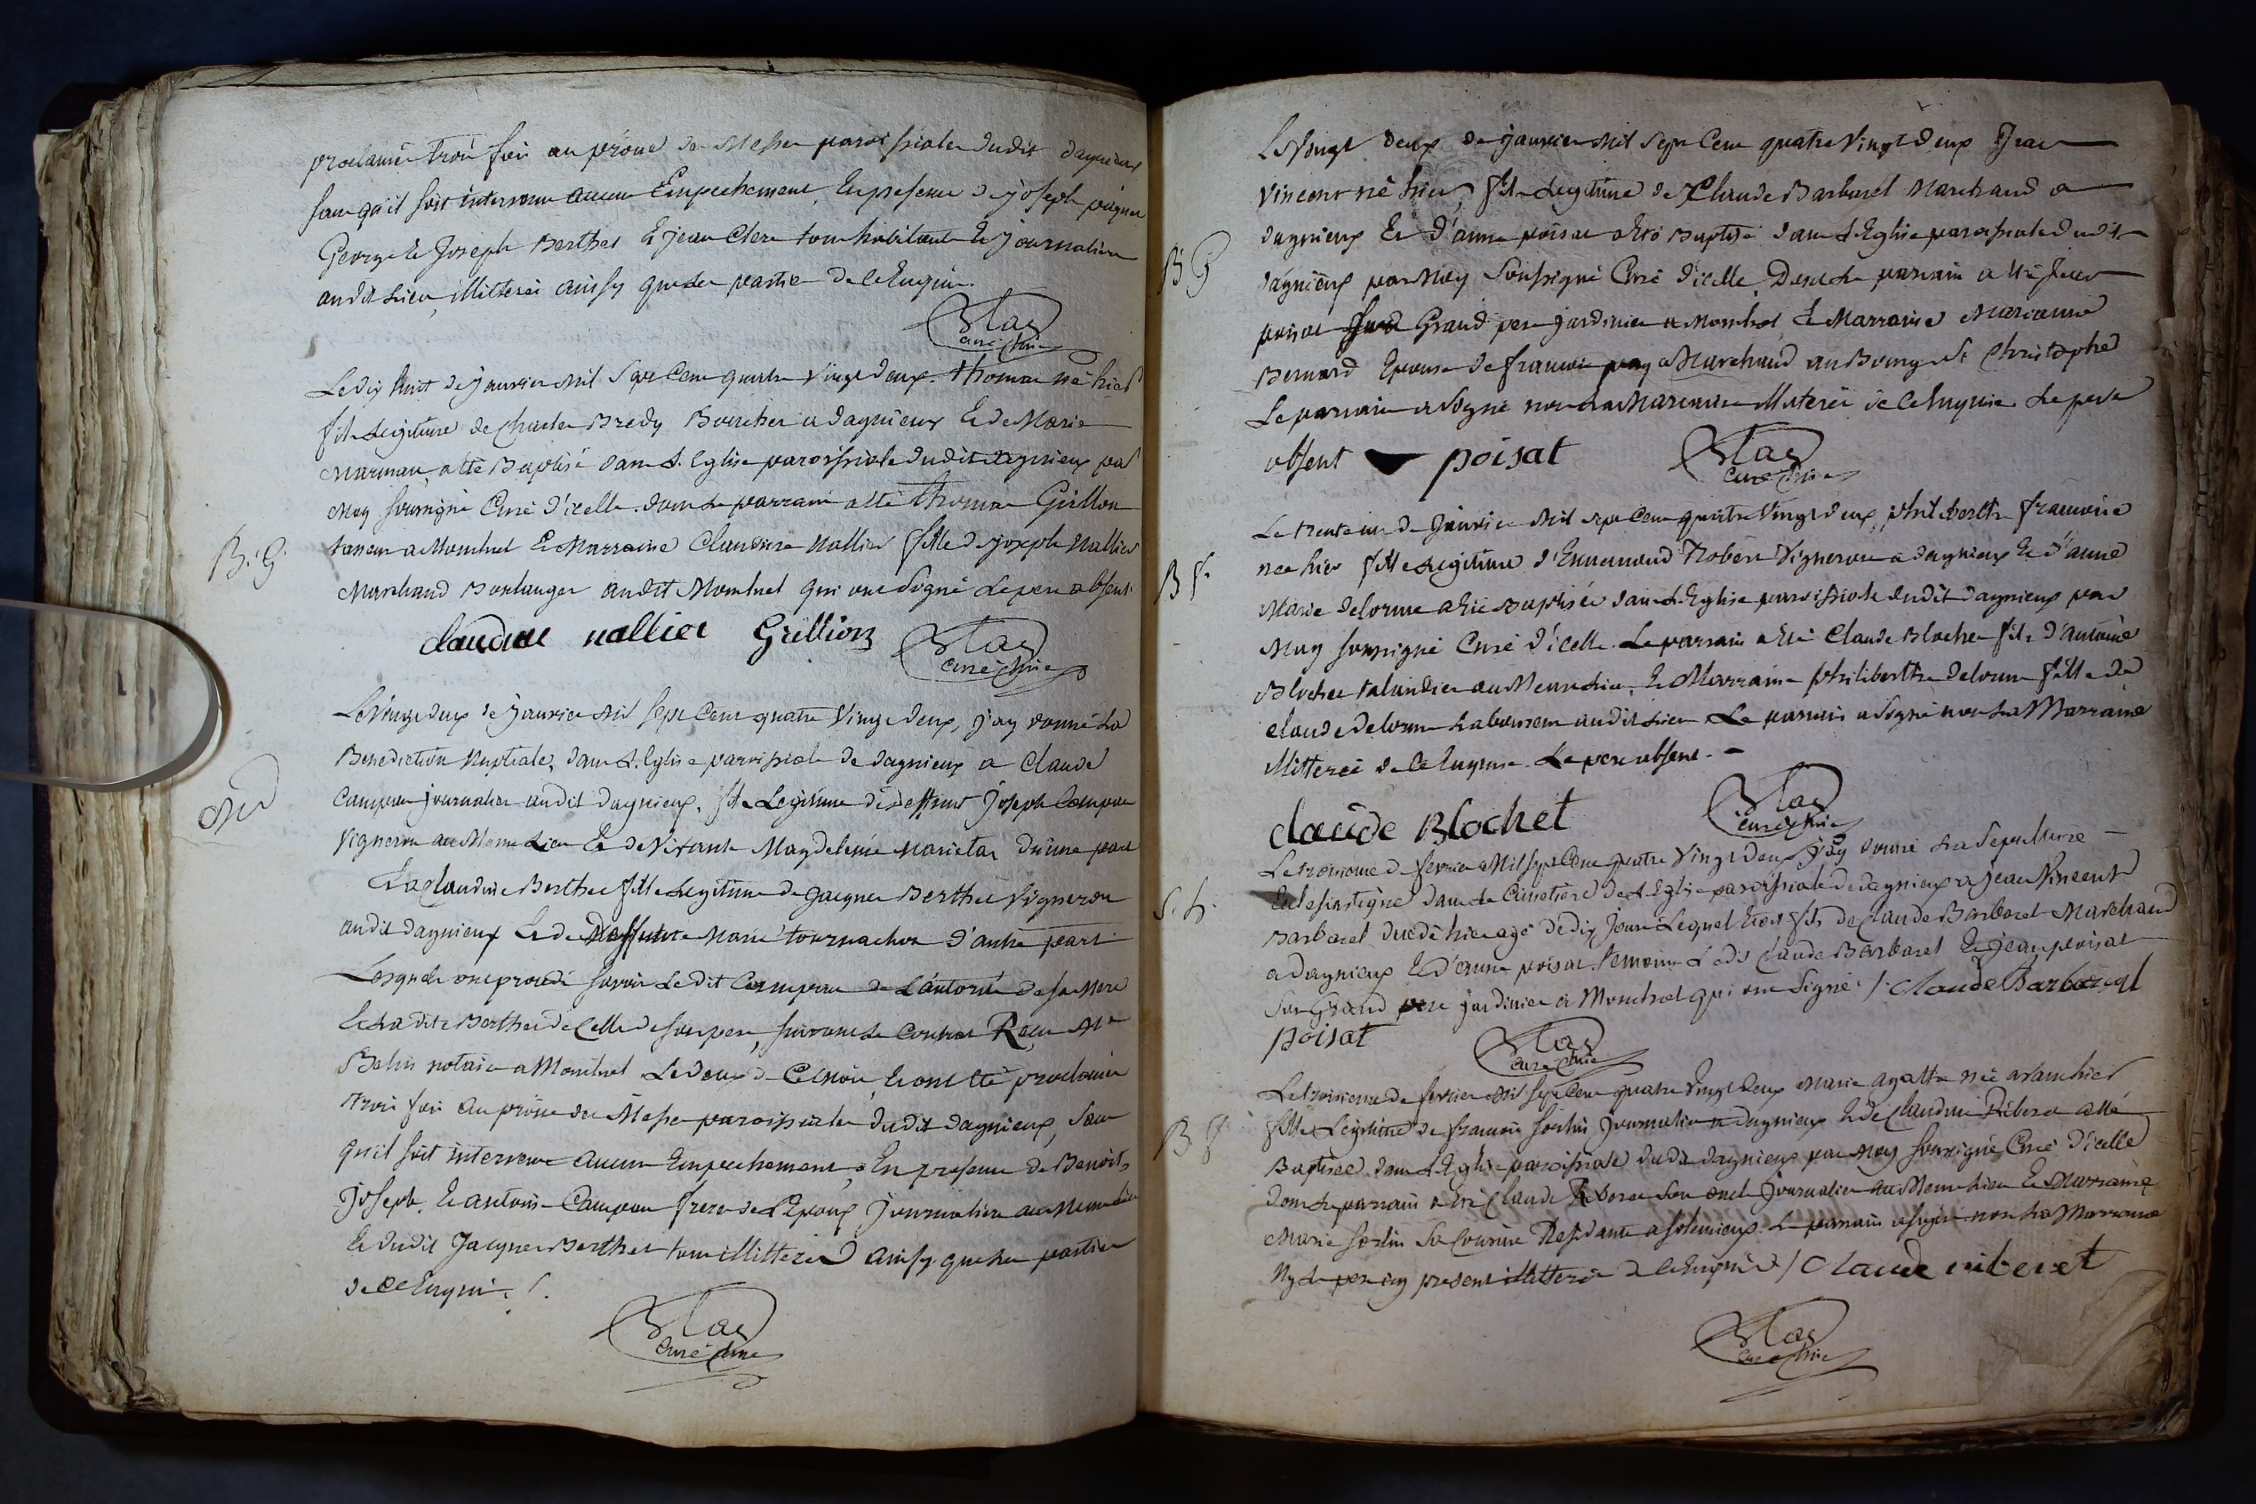 proclamés trois fois au prône des Messes paroissiales dudit dagnieux
sans qu'il soit intervenu aucun Empechement, En presence de joseph
George de Joseph Berthet & jean Clerc tous habitants & journaliers
audit Lieu, illitterés ainsy que les parties de ce Enquis.
Blas
curé
Le dix huit de janvier mil sept cens quatre vingt deux. Thomas né hier
fils Legitime de Charles Bredy Boucher a dagnieux & de Marie
Marman, a été Baptisé dans L'Eglise paroissiale dudit dagnieux par
Moy soussigné Curé d'icelle. dont le parrain a été Thomas Grillon
a Montluel & Marraine Claudine Nallier fille de joseph Nallier
B. G.
Marchand Boulanger audit Montluel qui ont signé le pere absent
claudine nallier Grillion
Blas
curé
Le vingt deux de janvier mil sept cens quatre vingt deux, j'ay donné La
Benediction Nuptiale, dans L'Eglise paroissiale de dagnieux a Claude
Campan journalier audit dagnieux, fils Legitime de deffunt Joseph Campan
M
vigneron au Meme Lieu & de vivante Magdeleine d'une part
Et a Claudine Berthet fille Legitime de jacques Berthet vigneron
audit dagnieux & de deffunte Marie tournachon d'autre part
Lesquels ont procedé savoir Le dit Campan de L'autorité de sa Mere
& La dite Berthet de Celle de son pere, suivant le Contrat Reçu Me
Belin notaire a Montluel Le deux de Ce mois, & ont été proclamés
trois fois au prône des Messes paroissiales dudit dagnieux, sans
qu'il soit intervenu aucun Empechement, En presence de Benoit,
Joseph, & antoine Campan freres de L'Epoux journaliers au meme Lieu
& dudit Jacques Berthet tous illitterés ainsy que les parties
de ce Enquis.
Blas
curé
Le vingt deux de janvier mil sept cens quatre vingt deux Jean
vincent né hier, fils Legitime de Claude Barbaret Marchand a
dagnieux & d'anne poisat a été Baptisé dans L'Eglise paroissiale dudit
B G
dagnieux par Moy Soussigné Curé d'icelle, Duquel le parrain a été Jean
poisat Grand pere jardinier a Montluel & Marraine Marianne
Bernard Epouse de francois Marchand au Bourg St Christophe
Le parrain a signé non la Marraine illiterée de ce Enquise Le pere
absent poisat
Blas
curé
Le trente un de janvier mil sept cens quatre vingt deux, philiberthe francoise
née hier fille Legitime d'Ennemond Robert vigneron a dagnieux & d'anne
B f.
Marie delorme a été Baptisée dans L'Eglise paroissiale dudit dagnieux par
Moy soussigné Curé d'icelle. Le parrain a été Claude Blochet fils d'antoine
Blochet taland­ier au Meme Lieu, & Marraine philiberthe delorme fille de
claude delorme Laboureur audit Lieu. Le parrain a signé non la Marraine
illitterée de ce Enquise. Le pere absent.
claude Blochet
Blas
curé
Le troisieme de fevrier Mil sept cens quatre vingt deux j'ay donné La Sepulture
Eclesiastique dans le Cimetiere de L'Eglise paroissiale de dagnieux a jean vincent
S. h.
Barbaret decedé hier agé de dix jours Lequel étoit fils de Claude Barbaret Marchand
a dagnieux & d'anne poisat. temoins Ledit Claude Barbaret & jean poisat
Son Grand pere jardinier a Montluel qui ont signé /. claude Barbaret
poisat
Blas
curé
Le troisieme de fevrier mil sept cens quatre vingt deux Marie agathe née avanthier
fille Legitime de francois sorlin journalier a dagnieux & de Claudine Riberet a été
B f
Baptisée dans L'Eglise paroissiale dudit dagnieux par moy soussigné Curé d'icelle
dont le parrain a été Claude Riberet son oncle journalier au Meme Lieu & Marraine
Marie sorlin sa Cousine Residante a. Le parrain a signé non la Marraine
Ny le pere icy present illitterés de ce Enquis / Claude riberet
Blas
curé